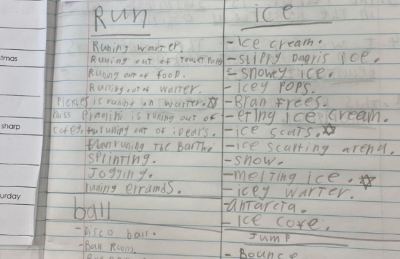 tmas
sharp
urday
Run
Runing warter.
Runing out of
Runing out of food.
Runing out of warter.
is runing on warter.
is runing out of
runing out of idears.
runing the Barth.
Sprinting.
Jogging.
runing erramds.
ball
-Disco ball.
-Ball Room.
ice
-Ice cream.
-Slippy ice.
-Snowey ice.
-Icey Pops.
-Brain frees.
-eting ice cream.
-ice scats.
-ice scatting arena.
-Snow.
-melting ice.
-icey warter.
-Antarcta.
-Ice Cove.
Jump
-Bounce